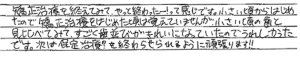 矯正治療を終えてみて、やって終わったーって感じです。小さい頃からはじめ
たので矯正治療をはじめた頃は覚えていませんが小さい頃の歯と
見比べてみて、すごく歯並びがきれいになっていたのでうれしかった
です。次は保定治療?も終わらせられるように頑張ります!!